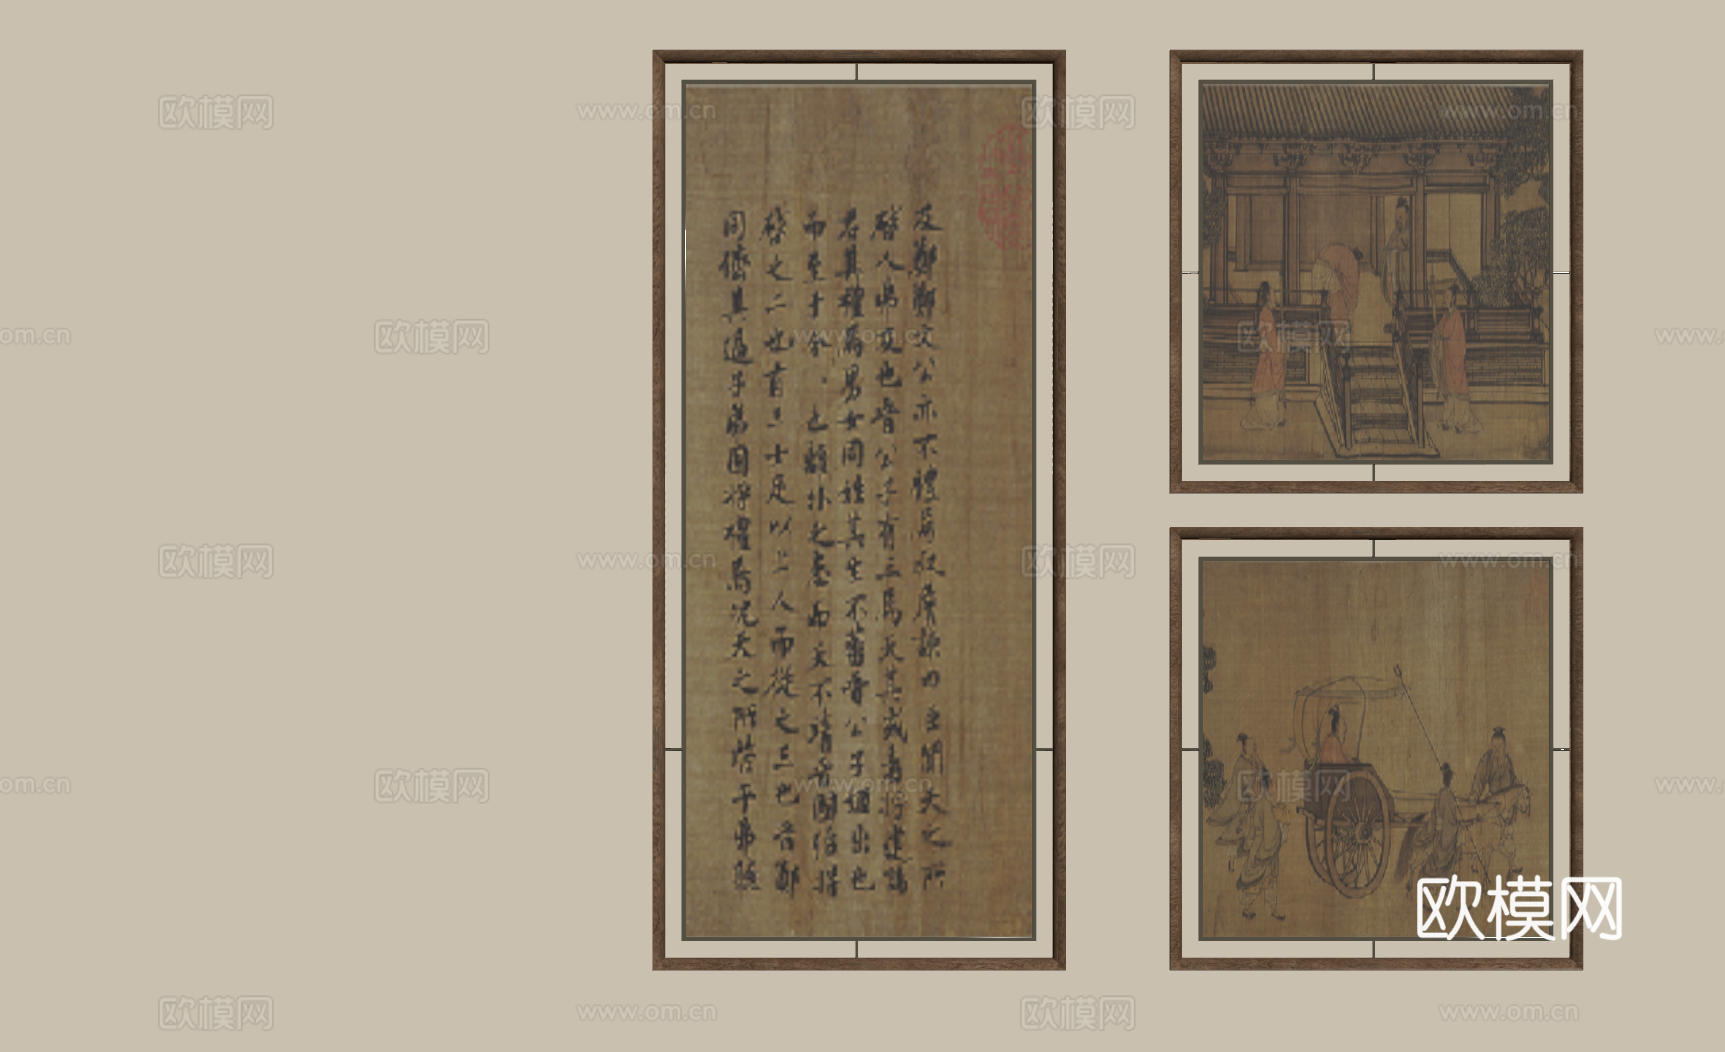 及鄭鄭文公亦不禮焉叔詹諫曰臣聞天之所
啓人弗及也晉公子有三焉天其或者將建諸
君其禮焉男女同姓其生不蕃晉公子姬出也
而至于今一也離外之患而天不靖晉國殆將
啓之二也有三士足以上人而從之三也晉鄭
同儕其過子弟固將禮焉況天之所啓乎弗聽
欧模网
www.om.cn
欧模网
www.om.cn
om.cn
欧模网
www.om.cn
欧模网
www.
欧模网
www.om.cn
欧模网
www.om.cn
om.cn
欧模网
www.om.cn
欧模网
www.
欧模网
欧模网
www.om.cn
欧模网
www.om.cn